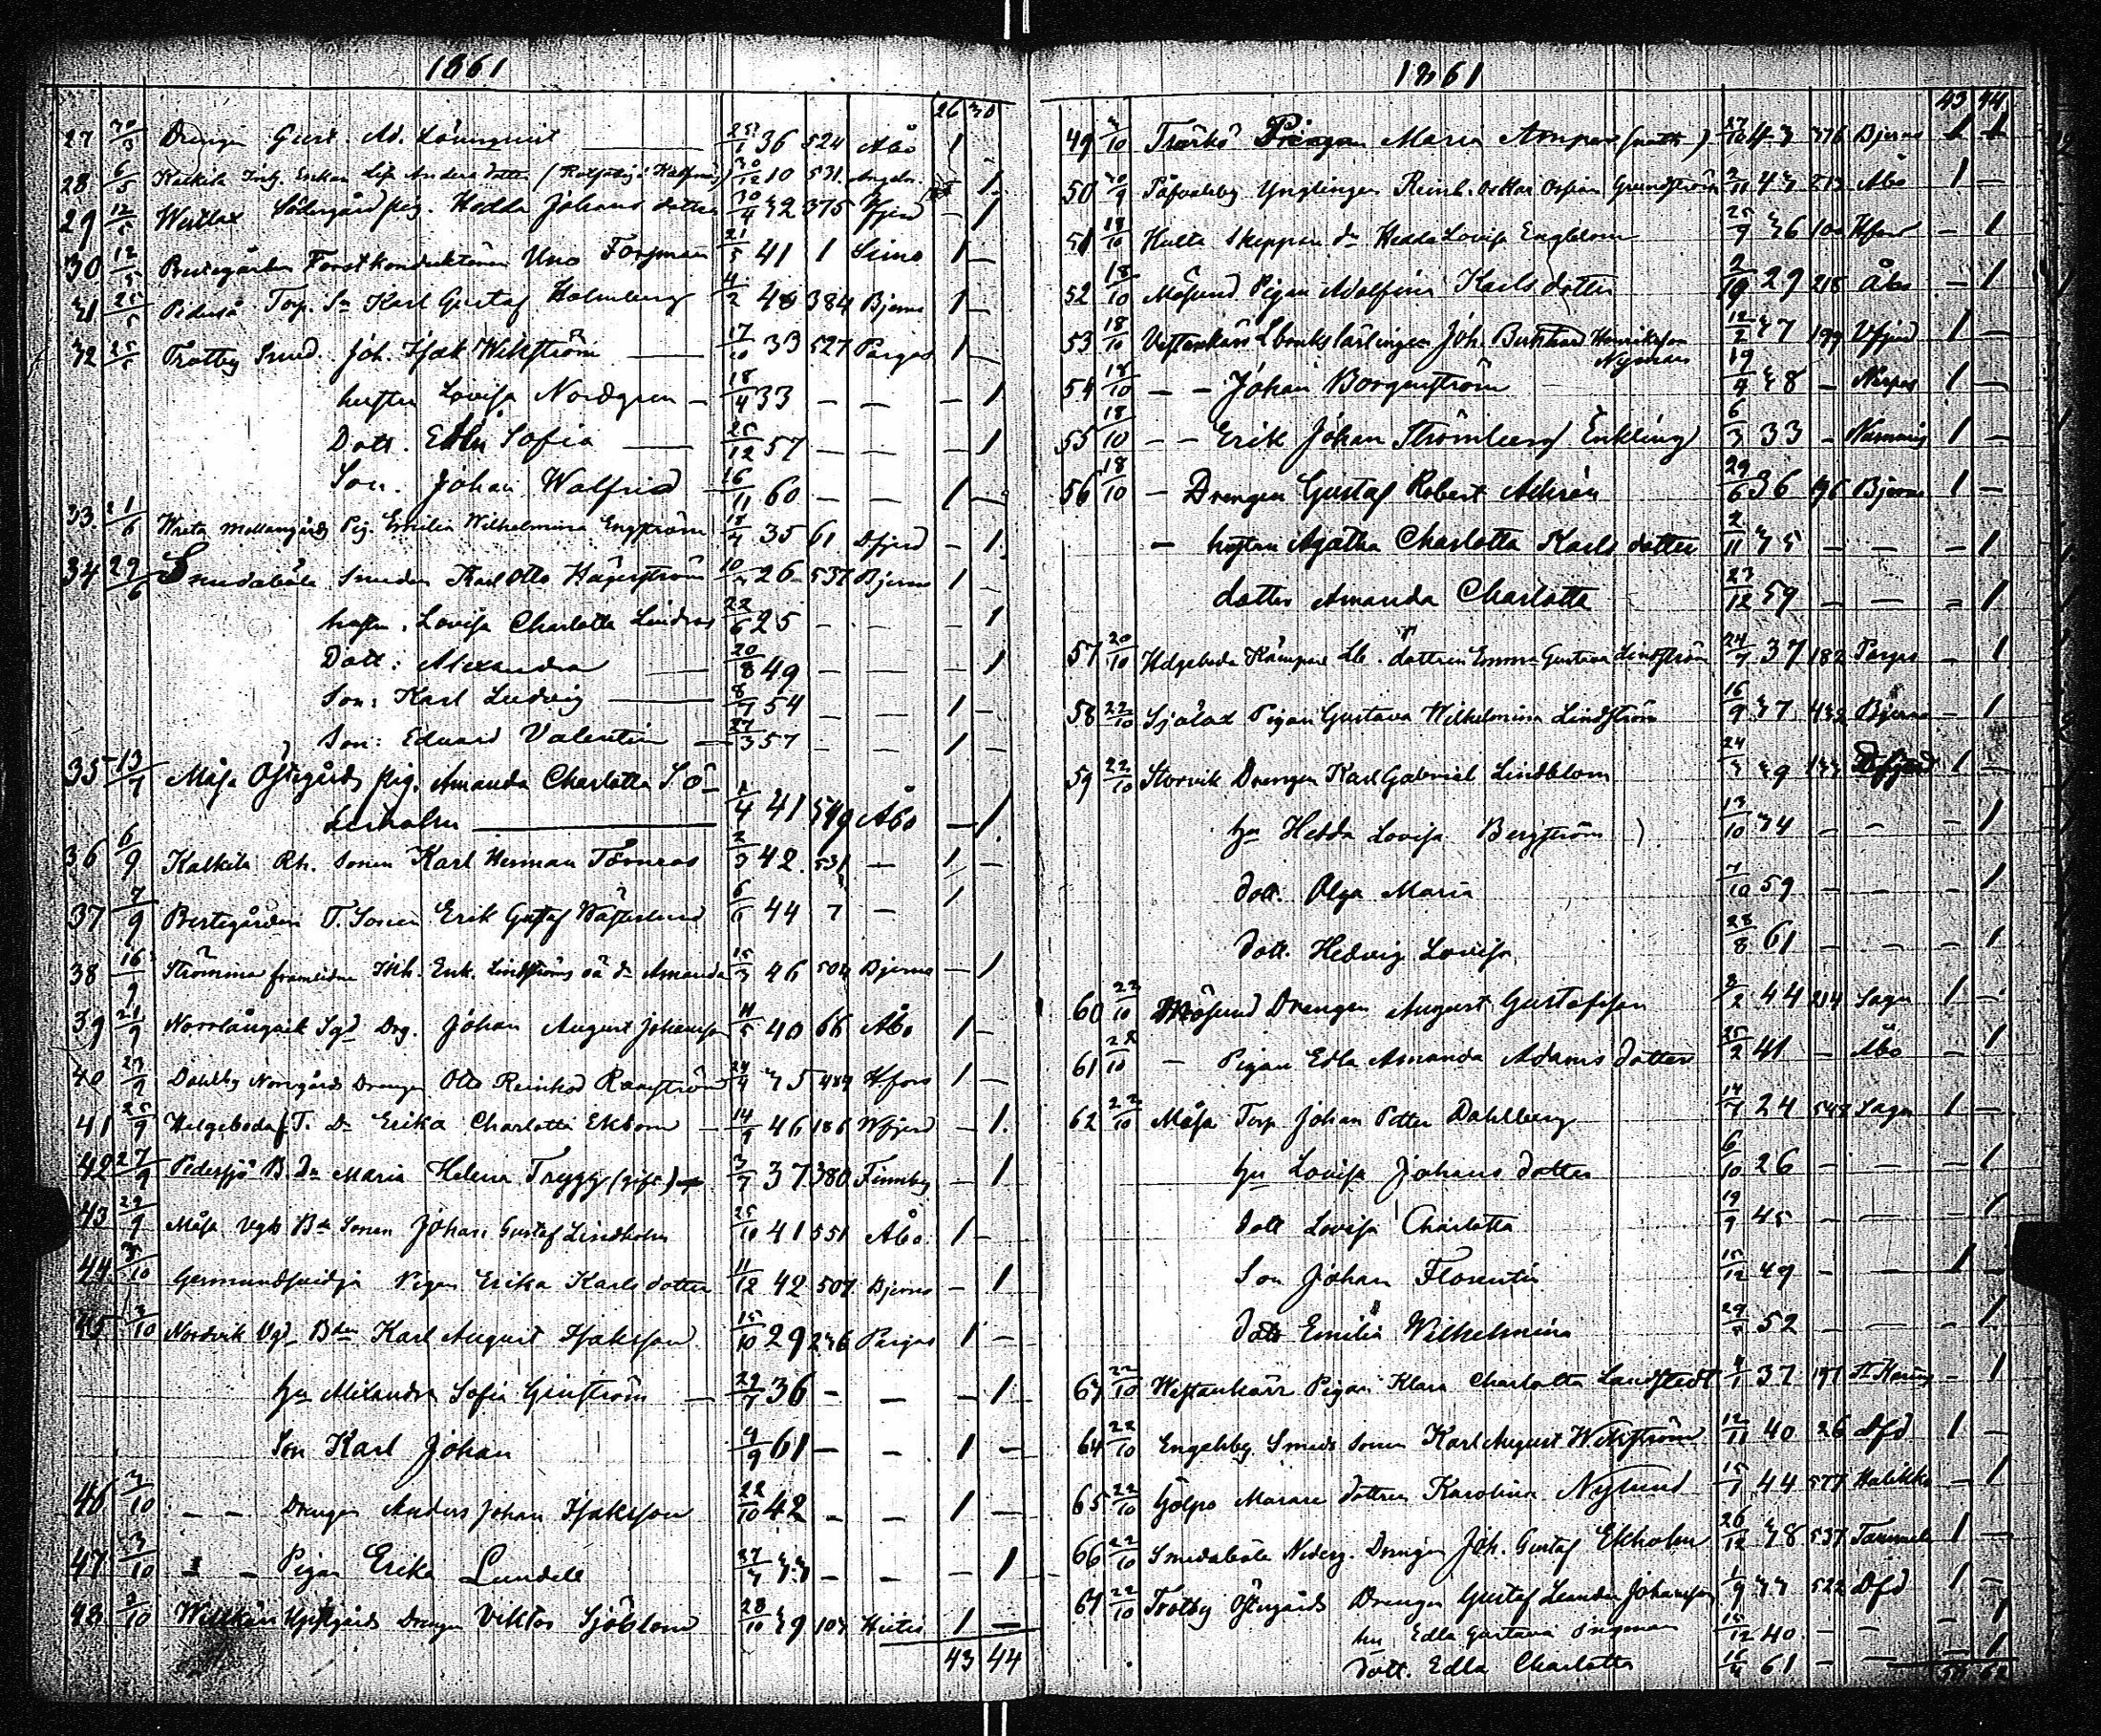 1861
26 30
27 30/3 Drengen Gust. Ad. Lönnqvist 36 524 Åbo 1
28 6/5 Kalkila Inh. Enkan Lisa Anders dotter 30/12 10 531 1
29 12/5 Westlax Södergård pig. Hedda Johans dotter 30/4 32 375 - 1
30 12/5 Forstkonduktören Uno Forsman 21/5 41 1 Simo 1 -
31 25/5 Pederså Torp. Sn Karl Gustaf Holmberg 4/2 384 Bjerno 1 -
32 25/5 Trotby Smed. Joh. Isak Wikström 17/10 33 527 Pargas 1 -
hustru Lovisa Nordgren - 18/4 33 - - - 1
Dott. Edla Sofia 25/12 57 - - - 1
Son. Johan Walfrid 16/11 60 - - 1 -
33 21/6 Mellangårds Pig. Emilia Wilhelmina Engström 18/4 35 61 Dfjerd - 1
34 29/6 Smedaböle Smeden Karl Otto Hägerström 26 537 Bjerno 1 -
hustru. Lovisa Charlotta Lindros 22/6 25 - - - 1
Dott: Alexandra 20/8 49 - - - 1
Son: Karl Ludvig 8/7 54 - - 1 -
Son: Eduard Valentin 27/3 57 - - 1 -
35 13/7 Måsa Östegårds pig. Amanda Charlotta Sö-
derholm 1/4 41 549 Åbo - 1
36 6/9 Kalkila Rh. Sonen Karl Herman Törnroos 2/3 42 531 - 1 -
37 7/9 Prestegården T. Sonen Erik Gustaf Västerlund 6/1 44 7 - 1
38 16/9 Strömma framlidne Inh. Enk. Lindströms oä dr Amanda 15/3 46 504 Bjerno - 1
39 21/9 Norrlångvik Sgd Drg. Johan August Johansson 11/5 40 66 Åbo 1 -
40 23/9 Dahlby Norrgårds Drengen Otto Reinhod Ramström 24/4 35 484 Hfors 1 -
41 25/9 Helgeboda T. Dr Erika Charlotta Ekbom - 14/9 46 186 Wfjerd - 1
42 27/9 Pedersjö B. Dn Maria Helena Trygg (gift) 3/7 37 380 Finnby - 1
43 29/9 Måsa Vgds Bd Sonen Johan Gustaf Lindholm 25/10 41 551 Åbo 1 -
44 3/10 Germundsvidja Pigan Erika Karls dotter 11/12 42 507 Bjerno - 1
45 3/10 Nordvik Vgd Bdn Karl August Isaksson 15/10 29 236 Pargas 1 -
hu Alexandra Sofia Grönström - 29/7 36 - - - 1
Son Karl Johan 4/9 61 - - 1 -
46 3/10 - - Drengen Anders Johan Isaksson 22/10 42 - - 1 -
47 3/10 - Pigan Erika Lundell 27/7 33 - - - 1
48 3/10 Westergårds Drengen Viktor Sjöblom 28/10 39 103 Hitis 1 -
43 44
1861
43 44
49 3/10 Trärkö Pigan Maria 27/10 43 376 Bjerno
50 30/9 Påfvalsby Ynglingen Reinh. Oskar Ossian Grundström 2/11 43 213 Åbo 1 -
51 18/10 Hulta Skeppare dr Hedda Lovisa Engblom 25/9 36 100 Hfors - 1
52 18/10 Mösund Pigan Adolfina Karls dotter 2/10 29 218 Åbo - 1
53 18/10 Vestankärr Lbruks lärlingen Joh. Bernhard Henriksson
Nyman 12/2 37 199 Vfjerd 1 -
54 18/10 - - Johan Borgenström 19/4 38 - 1 -
55 18/10 - - Erik Johan Strömberg Enkling 6/3 33 - 1 -
56 18/10 - Drengen Gustaf Robert Achrén 29/6 36 196 Bjerno 1 -
- hustrun Agatha Charlotta Karls dotter 2/11 35 - - - 1
dotter Amanda Charlotta 23/12 59 - - - 1
57 20/10 Helgeboda Kämpare Lb. dottren Emma Gustava Lindström 24/7 37 182 Pargas - 1
58 22/10 Sjölax Pigan Gustava Wilhelmina Lindström 16/9 37 432 Bjerno - 1
59 22/10 Storvik Drengen Karl Gabriel Lindblom 24/3 39 133 Dfjerd 1 -
hu Hedda Lovisa Bergström 13/10 34 - - - 1
dott. Olga Maria 7/10 59 - - - 1
dott. Hedvig Lovisa 28/8 61 - - - 1
60 22/10 Mösund Drengen August Gustafsson 3/2 44 214 Sagu 1 -
61 22/10 - Pigan Edla Amanda Adams dotter 25/2 41 - Åbo - 1
62 22/10 Måsa Torp Johan Petter Dahlberg 14/7 24 548 Sagu 1 -
hu Lovisa Johans dotter 6/10 26 - - - 1
dott Lovisa Charlotta 19/9 45 - - - 1
Son Johan Florentin 15/12 49 - - 1 -
dott Emilia Wilhelmina 29/ 52 - - - 1
63 22/10 Westankärr Pigan Klara Charlotta Landstedt 4/1 37 197 - 1
64 22/10 Engelsby Smeds sonen Karl August Wikström 12/11 40 26 Dfd 1 -
65 22/10 Gölpo Murare dottren Karolina Nylund 15/7 44 577 Halikko - 1
66 22/10 Smedaböle Nederg. Drengen Joh. Gustaf Ekholm 26/12 38 537 Tammela 1 -
67 22/10 Trotby Östergårds Drengen Gustaf Leander Johansson 1/9 33 522 Dfd 1 -
hu Edla Gustava Ingman 15/12 40 - - - 1
Dott. Edla Charlotta 15/4 61 - - - 1